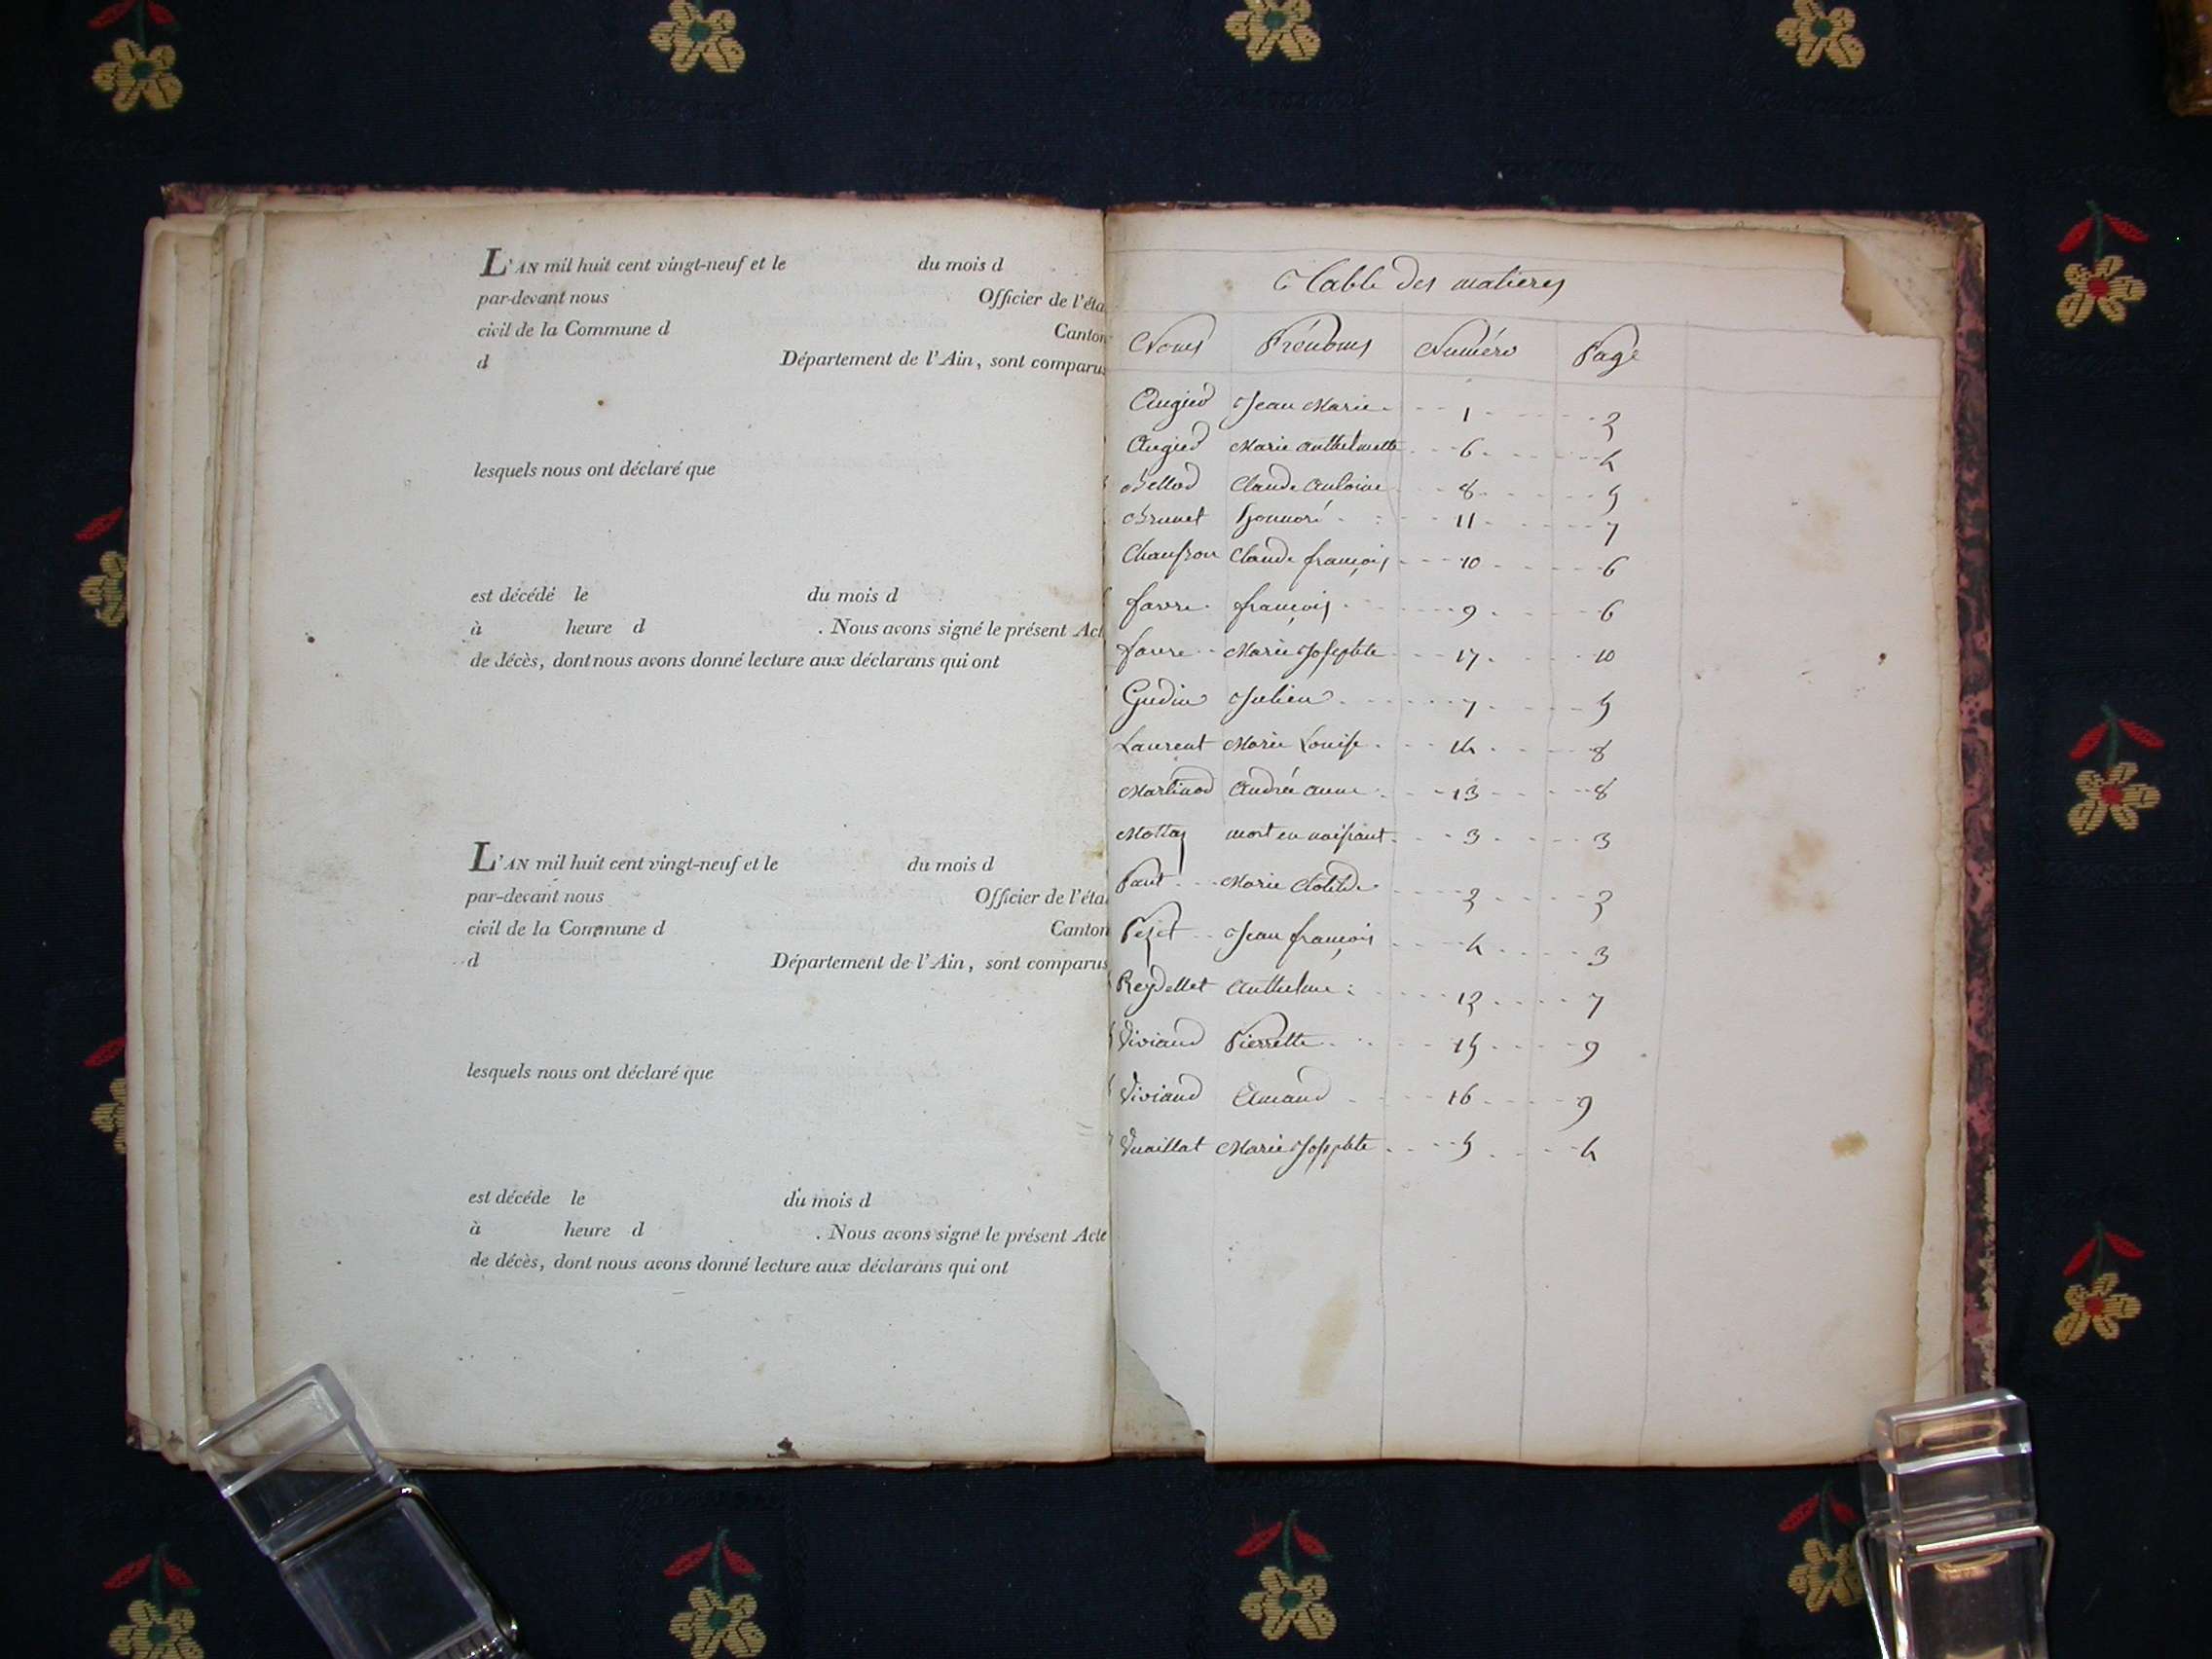 L'AN mil huit cent vingt-neuf et le du mois d
par-devant nous Officier de l'éta
civil de la Commune d Canton
d Département de l'Ain, sont comparus
lesquels nous ont déclaré que
est décédé le du mois d
à heure d . Nous avons signé le présent Act
de décès, dont nous avons donné lecture aux déclarans qui ont
L'AN mil huit cent vingt-neuf et le du mois d
par-devant nous Officier de l'éta
civil de la Commune d Canton
d Département de l'Ain, sont comparus
lesquels nous ont déclaré que
est décéde le du mois d
à heure d . Nous avons signé le présent Acte
de décès, dont nous avons donné lecture aux déclarans qui ont
Table des matieres
Noms Prénoms Numéro Page
Augied Jean Marie 1 2
Augied Marie anthelmette 6 4
Bellod Claude antoine 8 5
Brunet honnoré 11 7
Chanfron Claude françois 10 6
favre françois 9 6
favre Marie Josephte 17 10
Gudin Julien 7 5
Laurent Marie Louise 14 8
Martinod Andrée anne 13 8
Mottaz mort en naissant 3 3
Paut Marie Clotilde 2 2
Pezet Jean françois 4 3
Reydellet Anthelme 12 7
Viviand Pierrette 15 9
Viviand Amand 16 9
Vuaillat Marie Josephte 5 4